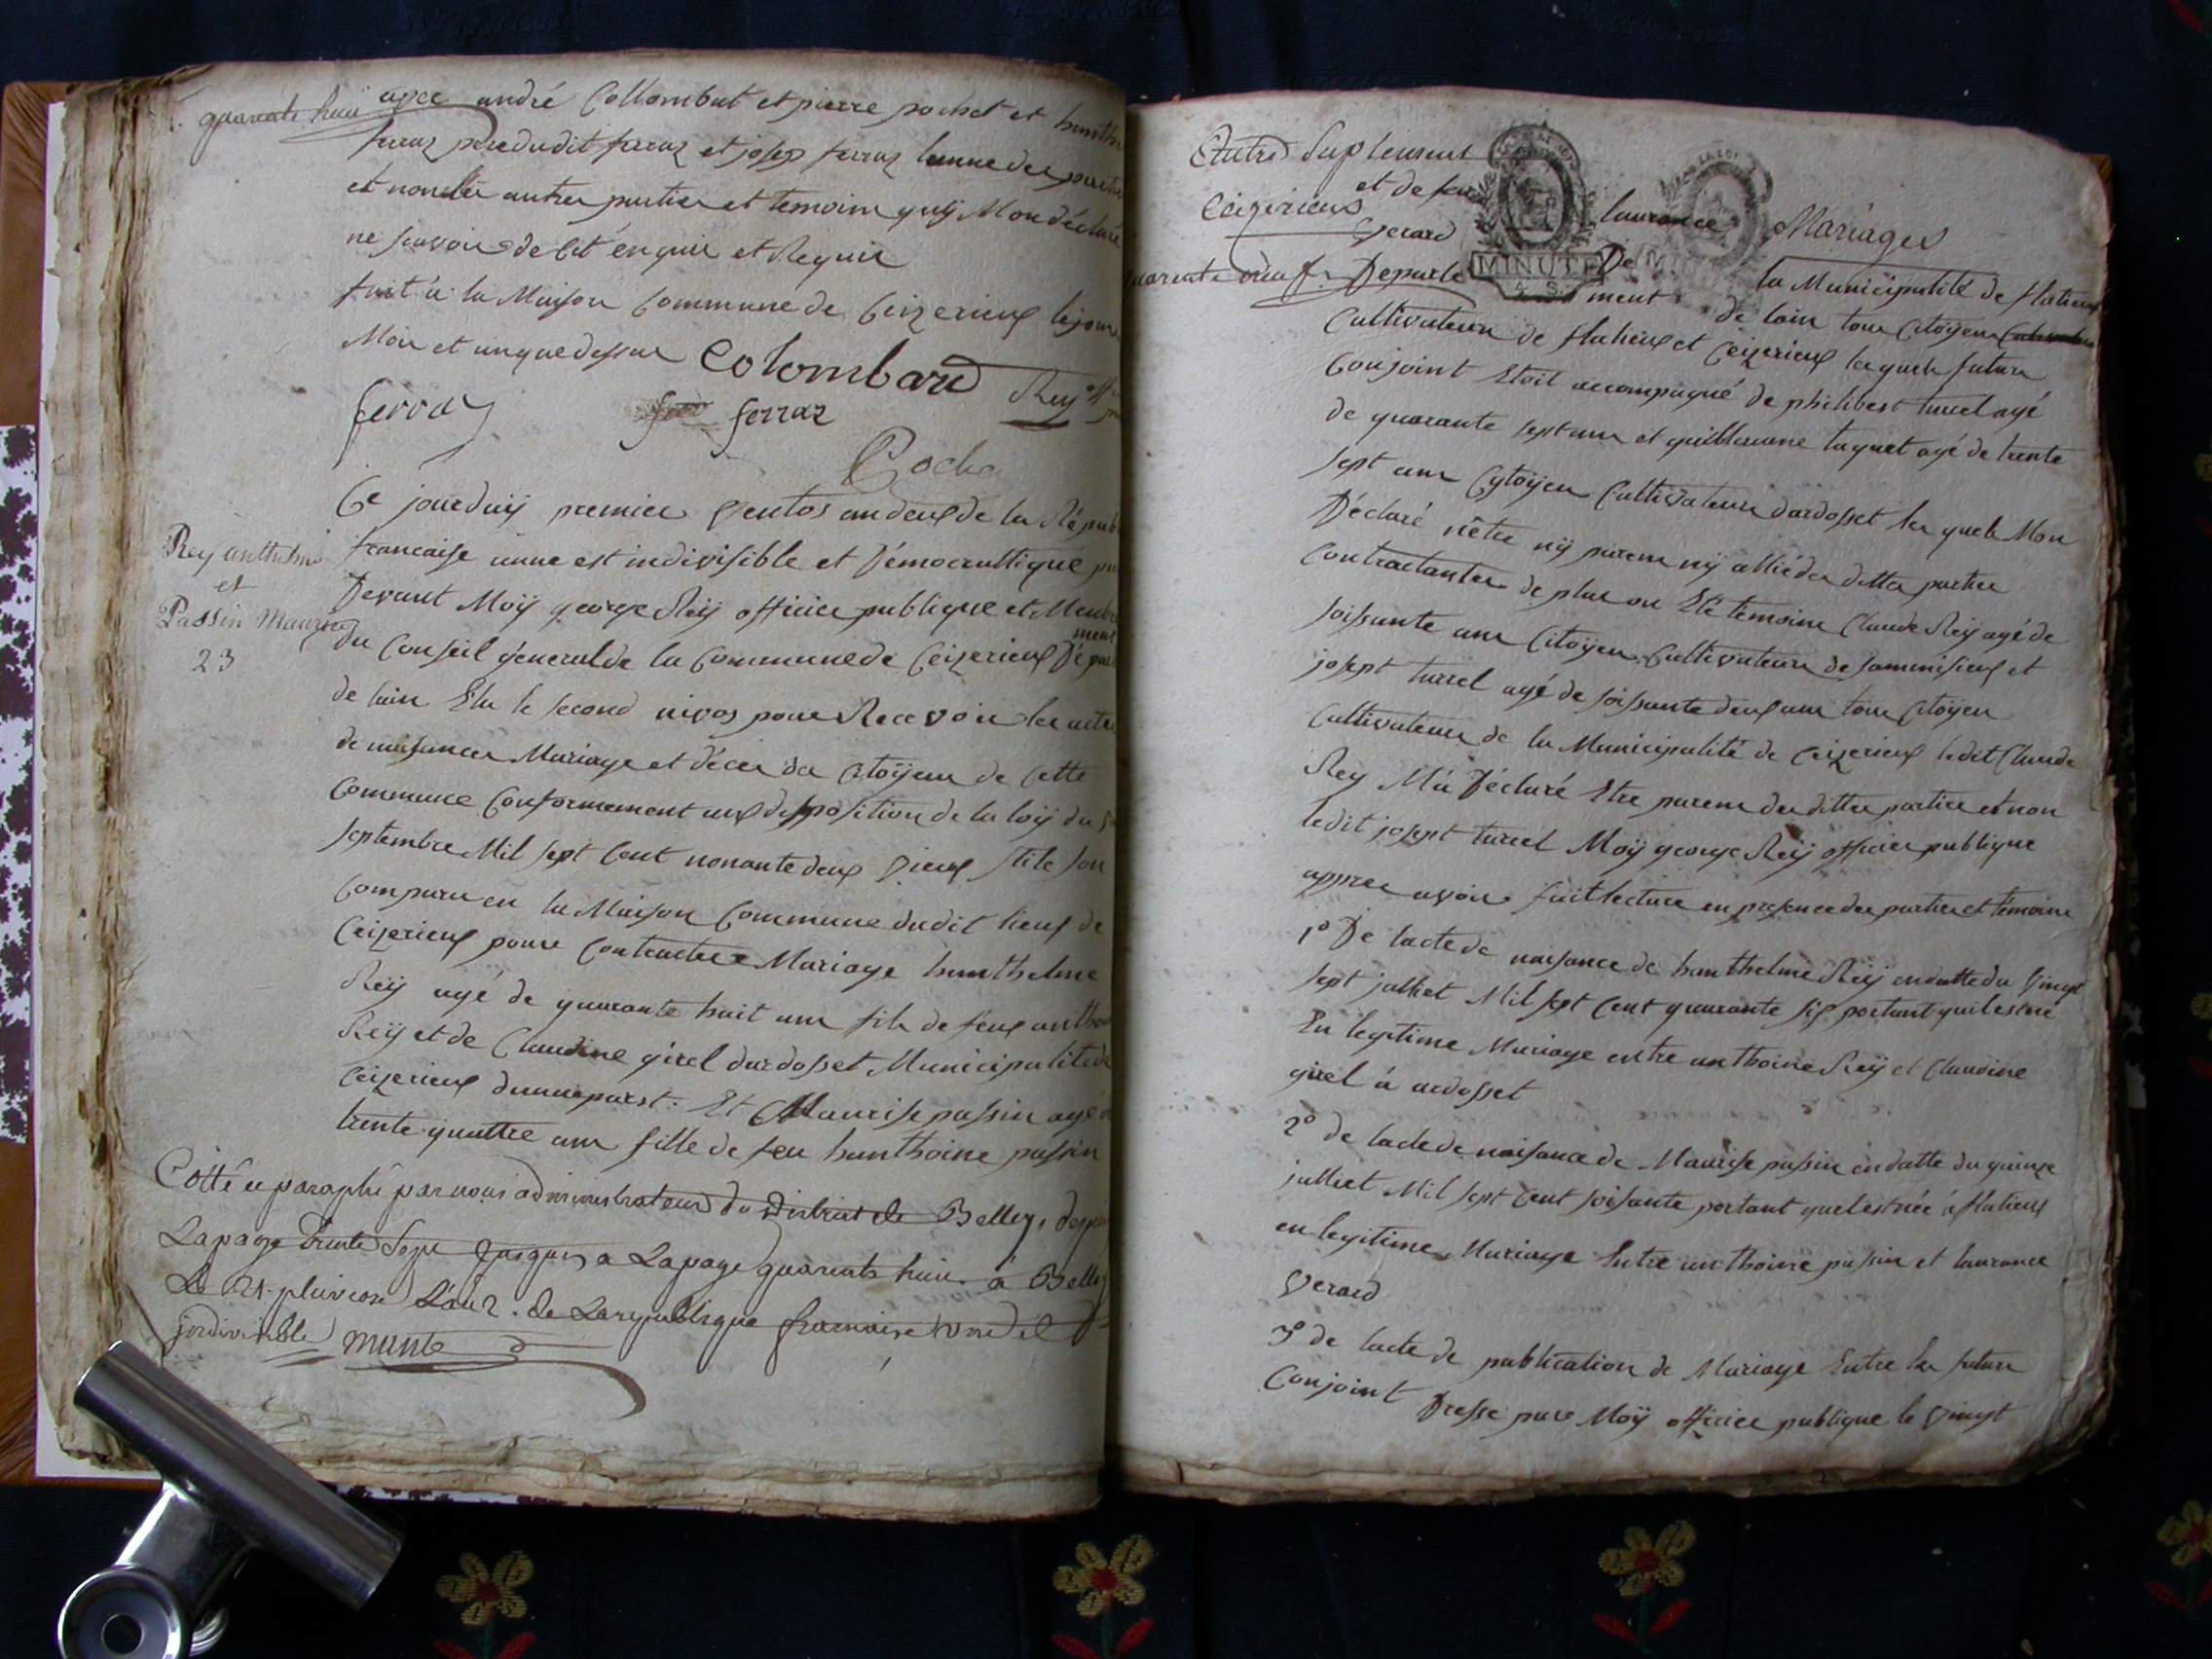 quarente huit
apee andré Collombat et pierre pochet et hunthe
ferraz pere dudit ferraz et josep ferraz lunne des partie
et non der autrer partier et temoins quÿ Mon déclaré
ne scavoir de Cét enquis et Requis
fait a la Maison Commune de Ceizerieux lejour
Mois et anque dessus Colombard Rey off
ferraz ferraz
Poche
Ce jourduÿ premier Ventos an deux de la Répub
francaise unne est indivisible et Démocrattique pa
Devant Moÿ george Reÿ officier publique et Membre
du Conseil géneral de la Commune de Ceizerieux Dépar
ment
Rey anthelme
et
Passin Maurise
23
de lain Elu le second nivos pour Recevoir les acte
de naisances Mariage et décés des Citoÿens de Cette
Commune Conformement aux disposition de la loÿ du
septembre Mil sept Cent nonante deux vieux stile son
Comparu en la Maison Commune dudit lieux de
Ceizerieux pour Contracter Mariage hanthelme
Reÿ agé de quarante huit ans fils de feux anthoi
Reÿ et de Claudine girel dardosset Municipalité de
Ceizerieux dunne parst: Et Maurise passin agé
trente quattre ans fille de feu hanthoine passin
Cotté et paraphé par nous administrateur du District de Belley, depuis
La page trente sept jusques a La page quarente huit a Belley
Le 21 pluviose L'an 2. de La republique francaise une et
jndivisible munte
Autre Suplement
Ceizerieux Mariages
quarente neuf
et de feu laurance
Gerard De la Municipalité de flatieux
Departe ment de lain tous Citoÿens
MINUTE
4 S.
Cultivateurs de flatieux et Ceizerieux les quels futurs
Conjoint Etoit accompagné de philibest turrel agé
de quarante sept ans et guilleaume taquet agé de trente
sept ans Cytoÿens Cultivateurs dardosset les quels Mon
Déclaré nêtre nÿ parens nÿ alliés des dittes parties
Contractantes de plus on Eté temoins Claude Reÿ agé de
soissante ans Citoÿen Cultivateur de sommisieux et
josept turrel agé de soissante deux ans tous Citoÿen
Cultivateurs de la Municipalité de Ceizerieux ledit Claude
Rey M'a Déclaré Etre parens des dittes parties et non
ledit josept turrel Moÿ george Reÿ officier publique
appres avoir fait lecture en presence des parties et témoins
1º De lacte de naisance de hanthelme Reÿ en datte du vingt
sept julliet Mil sept Cent quarante six portant quil est né
En legitime Mariage entre anthoine Reÿ et Claudine
girel á ardosset
2º de lacte de naisance de Maurise passin en datte du quinze
julliet Mil sept Cent soisante portant quel est née á flatieux
en legitime Mariage Entre anthoine passin et laurance
Gerard
3º de lacte de publication de Mariage Entre les futurs
Conjoint Dresse pare Moÿ officier publique le vingt